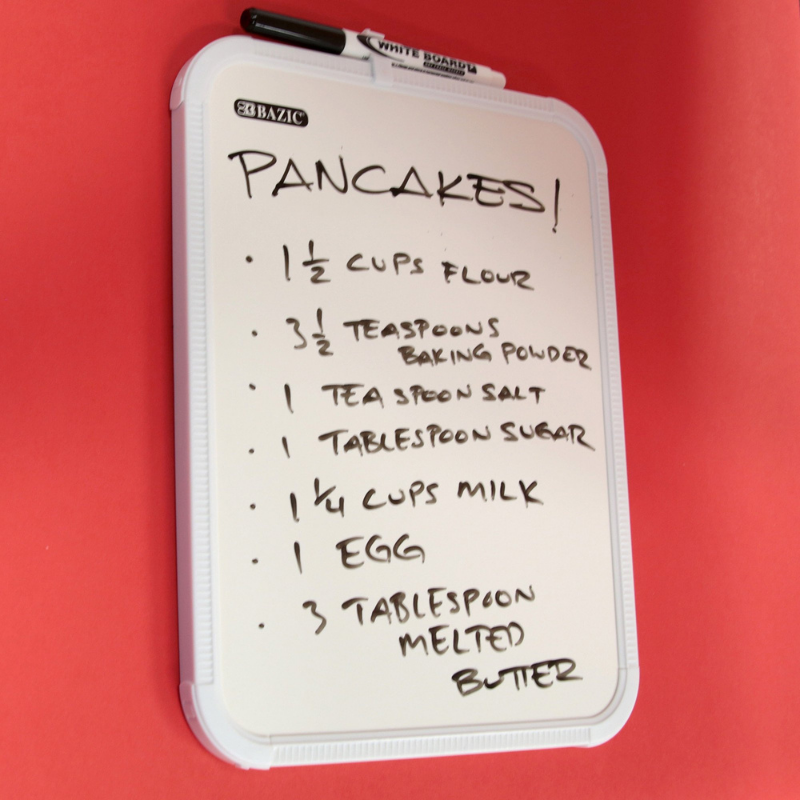 WHITE BOARD
BAZIC
PANCAKES!
· 1 1/2 CUPS FLOUR
· 3 1/2 TEASPOONS
BAKING POWDER
· 1 TEASPOON SALT
· 1 TABLESPOON SUGAR
· 1 1/4 CUPS MILK
· 1 EGG
· 3 TABLESPOON
MELTED
BUTTER